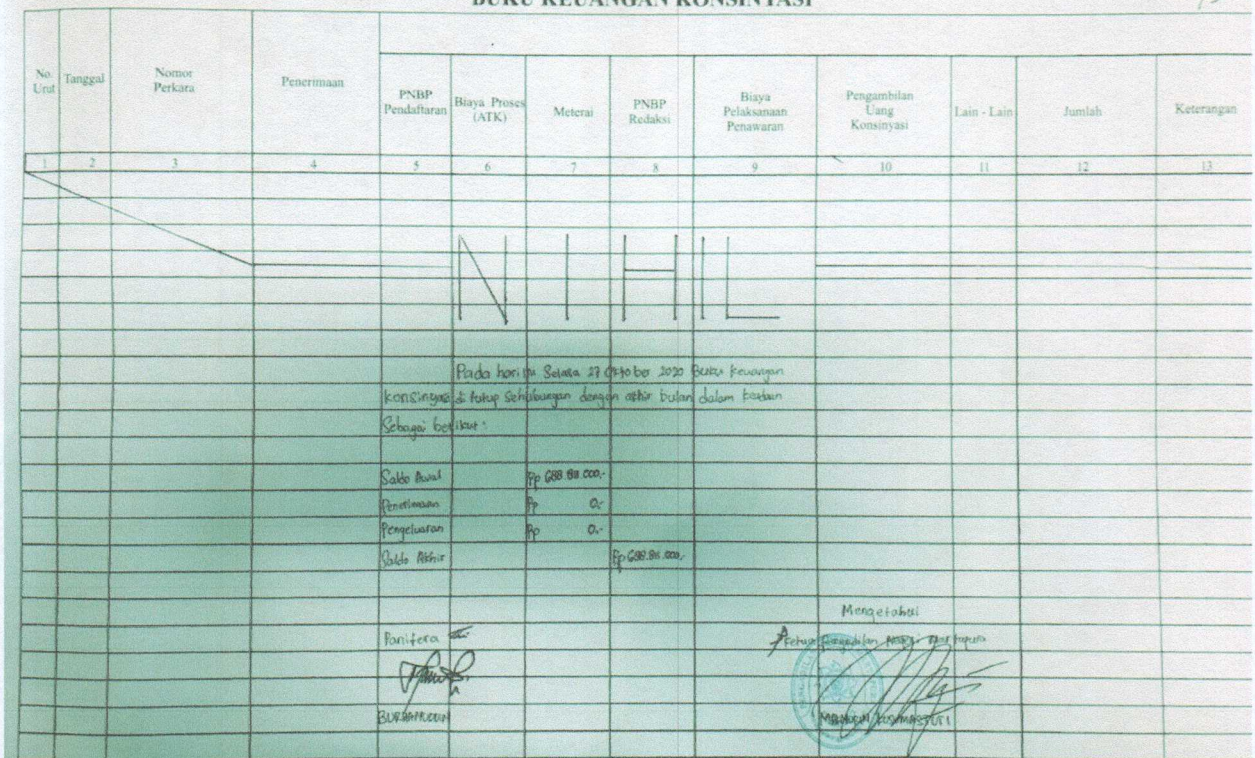 BUKU KEUANGAN KONSINYASI
No. Urut
Tanggal
Nomor Perkara
Penerimaan
PNBP Pendaftaran
Biaya Proses (ATK)
Meterai
PNBP Redaksi
Biaya Pelaksanaan Penawaran
Pengambilan Uang Konsinyasi
Lain - Lain
Jumlah
Keterangan
1 2 3 4 5 6 7 8 9 10 11 12 13
NIHIL
Pada hari ini Selasa 27 Oktober 2020 Buku keuangan
konsinyasi di tutup sehubungan dengan akhir bulan dalam keadaan
Sebagai berikut :
Saldo Awal Rp
Penerimaan Rp 0,-
Pengeluaran Rp 0,-
Saldo Akhir Rp
Mengetahui
Panitera
Ketua Pengadilan Negeri Martapura
BURHANUDDIN